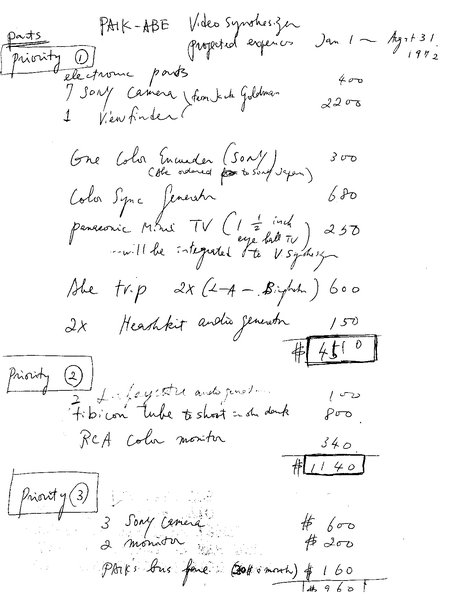 PAIK-ABE Video Synthesizer
projected expences Jan 1 ~ Agst 31 1972
parts
priority ①
electronic parts 400
7 Sony Camera
1 Viewfinder
from Jack Goldman 2200
One Color Encoder (Sony) 300
(Abe ordered to Sony Japan)
Color Sync Generator 680
panasonic Mini TV (1 1/2 inch eye ball TV) 250
...will be integrated to V Synthesizer
Abe trip 2x (L-A - ) 600
2x Heathkit audio generator 150
$ 4510
Priority ②
2 Lafayette audio 100
Tibicon tube to shoot in the dark 800
RCA Color monitor 340
$ 1140
Priority ③
3 Sony Camera $ 600
2 monitor $ 200
PAIK's bus fare month) $ 160
$ 960